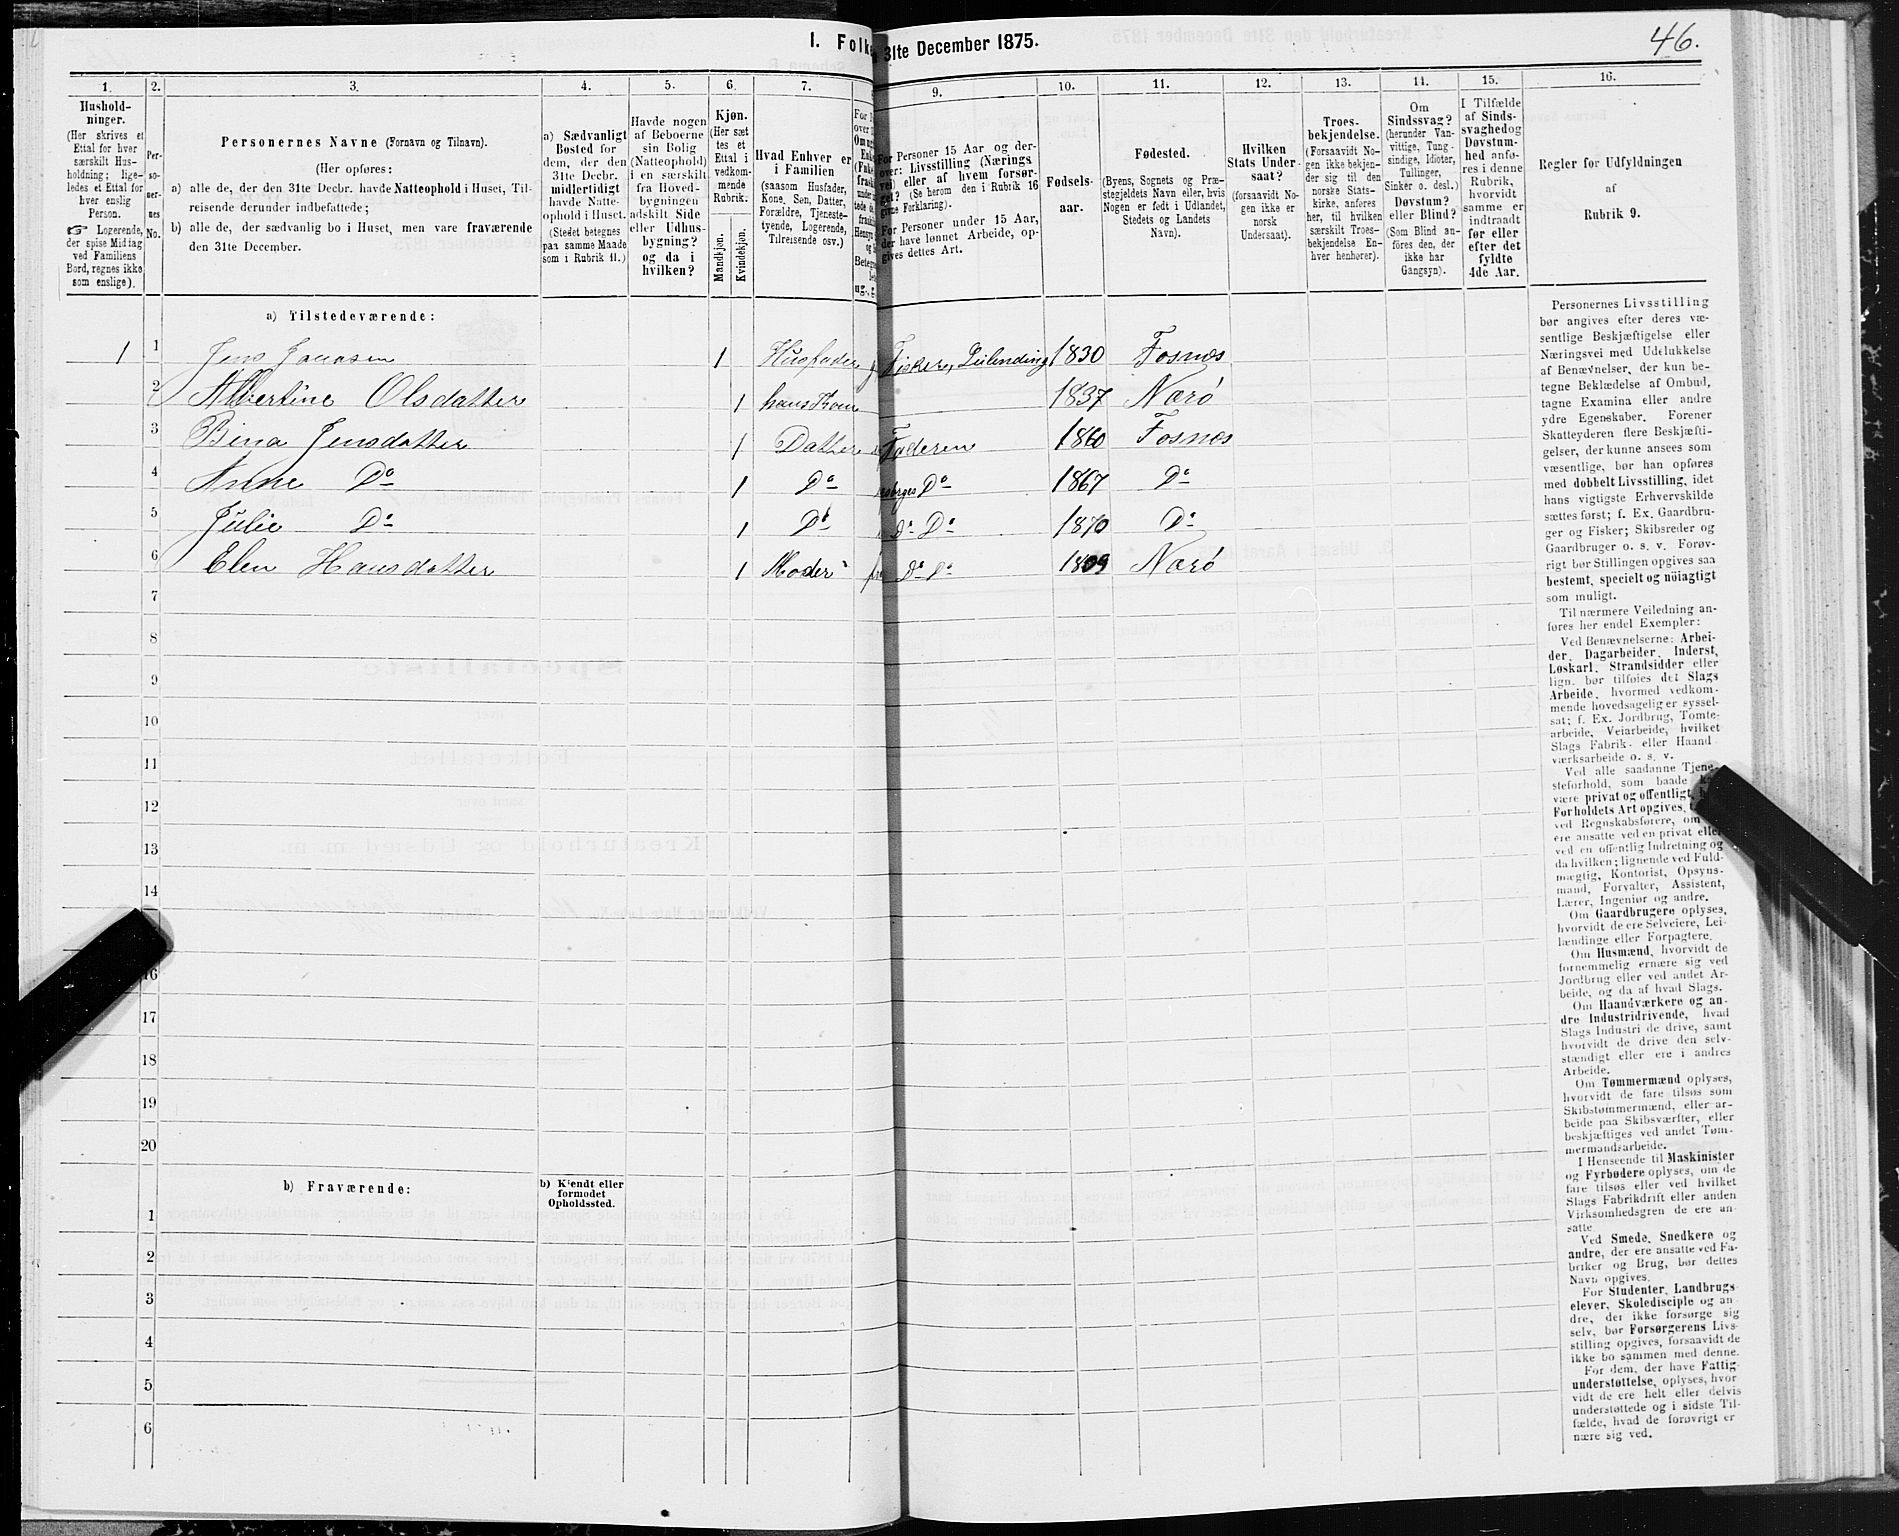 46.
I. Folke 31te December 1875.
1. 2. 3. 4. 5. 6. 7. 9. 10. 11. 12. 13. 14. 15. 16.
Hushold-
ninger.
(Her skrives et
Ettal for hver
særskilt Hus-
holdning; lige-
ledes et Ettal for
hver enslig
Person.
☞ Logerende,
der spise Middag
ved Familiens
Bord, regnes ikke
som enslige).
Per-
so-
ner-
nes
No.
Personernes Navne (Fornavn og Tilnavn).
(Her opføres:
a) alle de, der den 31te Decbr. havde Natteophold i Huset, Til-
reisende derunder indbefattede;
b) alle de, der sædvanlig bo i Huset, men vare fraværende
den 31te December.
a) Sædvanligt
Bosted for
dem, der den
31te Decbr.
midlertidigt
havde Natte-
ophold i Huset.
(Stedet betegnes
paa samme Maade
som i Rubrik 11.)
Havde nogen
af Beboerne
sin Bolig
(Natteophold)
i en særskilt
fra Hoved-
bygningen
adskilt Side
eller Udhus-
bygning?
og da i
hvilken?
Kjøn.
(Her sæt
tes et
Ettal i
vedkom-
mende
Rubrik.
Mandkjøn.
Kvindekjøn.
Hvad Enhver er
i Familien
(saasom Husfader,
Kone, Søn, Datter,
Forældre, Tjeneste-
tyende, Logerende,
Tilreisende osv.)
For Personer 15 Aar og der-
over: Livsstilling (Nærings
vei) eller af hvem forsør-
get? (Se herom den i Rubrik 16
givne Forklaring).
For Personer under 15 Aar,
der have lønnet Arbeide, op-
gives dettes Art.
Fødsels-
aar.
Fødested.
(Byens, Sognets og Præ-
stegjeldets Navn eller, hvis
Nogen er født i Udlandet,
Stedets og Landets
Navn).
Hvilken
Stats Under-
saat?
(forsaavidt No-
gen ikke er
norsk
Undersaat).
Troes-
bekjendelse.
(Forsaavidt No-
gen ikke bekjen-
der sig til den
norske Stats-
kirke, anføres
her, til hvilken
særskilt Troes-
bekjendelse En-
hver henhører).
Om
Sindssvag?
(herunder Van-
vittige, Tung-
sindige, Idioter,
Tullinger,
Sinker o. desl.)
Døvstum?
eller Blind?
(Som Blind an-
føres den, der
ikke har
Gangsyn).
I Tilfælde
af Sinds-
svaghed og
Døvstum-
hed anfø-
res i denne
Rubrik,
hvorvidt
samme er
indtraadt
før eller
efter det
fyldte
4de Aar.
Regler for Udfyldningen
af
Rubrik 9.
a) Tilstedeværende:
1 1 Jens Jensen 1 Husfader Fisker, Leilending 1830 Fosnæs
2 Albertine Olsdatter 1 hans Kone 1837 Nærö
3 Bina Jensdatter 1 Datter Faderen 1860 Fosnæs
4 Anne Do 1 Do Do 1867 Do
5 Julie Do 1 Do Do Do 1870 Do
6 Elen Hansdatter 1 Moder Do Do 1809 Nærö
7
8
9
10
11
12
13
14
16
17
18
19
20
b) Fraværende:
b) Kjendt eller
formodet
Opholdssted.
1
2
3
4
5
6
Personernes Livsstilling
bør angives efter deres væ-
sentlige Beskjæftigelse eller
Næringsvei med Udelukkelse
af Benævnelser, der kun be-
tegne Beklædelse af Ombud,
tagne Examina eller andre
ydre Egenskaber. Forener
Skatteyderen flere Beskjæfti-
gelser, der kunne ansees som
væsentlige, bør han opføres
med dobbelt Livsstilling, idet
hans vigtigste Erhvervskilde
sættes først; f. Ex. Gaardbru-
ger og Fisker; Skibsreder og
Gaardbruger o. s. v. Forøv-
rigt bør Stillingen opgives saa
bestemt, specielt og nöiagtigt
som muligt.
Til nærmere Veiledning an-
føres her endel Exempler:
Ved Benævnelserne: Arbei-
der, Dagarbeider, Inderst,
Løskarl, Strandsidder eller
lign. bør tilføies det Slags
Arbeide, hvormed vedkom-
mende hovedsagelig er syssel-
sat; f. Ex. Jordbrug, Tomte-
arbeide, Veiarbeide, hvilket
Slags Fabrik- eller Haand-
værksarbeide o. s. v.
Ved alle saadanne Tjene-
steforhold, som baade
være privat og offentligt,
Forholdets Art opgives,
ved Regnskabsførere, om
ere ansatte ved en privat eller
ved en offentlig Indretning og
da hvilken; lignende ved Fuld-
mægtig, Kontorist, Opsyns-
mand, Forvalter, Assistent,
Lærer, Ingeniør og andre.
Om Gaardbrugere oplyses,
hvorvidt de ere Selveiere, Lei-
lændinge eller Forpagtere.
Om Husmænd, hvorvidt de
fornemmelig ernære sig ved
Jordbrug eller ved andet Ar-
beide, og da af hvad Slags.
Om Haandværkere og an-
dre Industridrivende, hvad
Slags Industri de drive, samt
hvorvidt de drive den selv-
stændigt eller ere i andres
Arbeide.
Om Tømmermænd oplyses,
hvorvidt de fare tilsøs som
Skibstømmermænd, eller ar-
beide paa Skibsværfter, eller
beskjæftiges ved andet Tøm-
mermandsarbeide.
I Henseende til Maskinister
og Fyrbødere oplyses, om de
fare tilsøs eller ved hvilket
Slags Fabrikdrift eller anden
Virksomhedsgren de ere an-
satte.
Ved Smede, Snedkere og
andre, der ere ansatte ved Fa-
briker og Brug, bør dettes
Navn opgives.
For Studenter, Landbrugs-
elever, Skoledisciple og an-
dre, der ikke forsørge sig
selv, bør Forsørgerens Livs-
stilling opgives, forsaavidt de
ikke bo sammen med denne.
For dem, der have Fattig-
understøttelse, oplyses, hvor-
vidt de ere helt eller delvis
understøttede og i sidste Til-
fælde, hvad de forøvrigt er
nære sig ved.